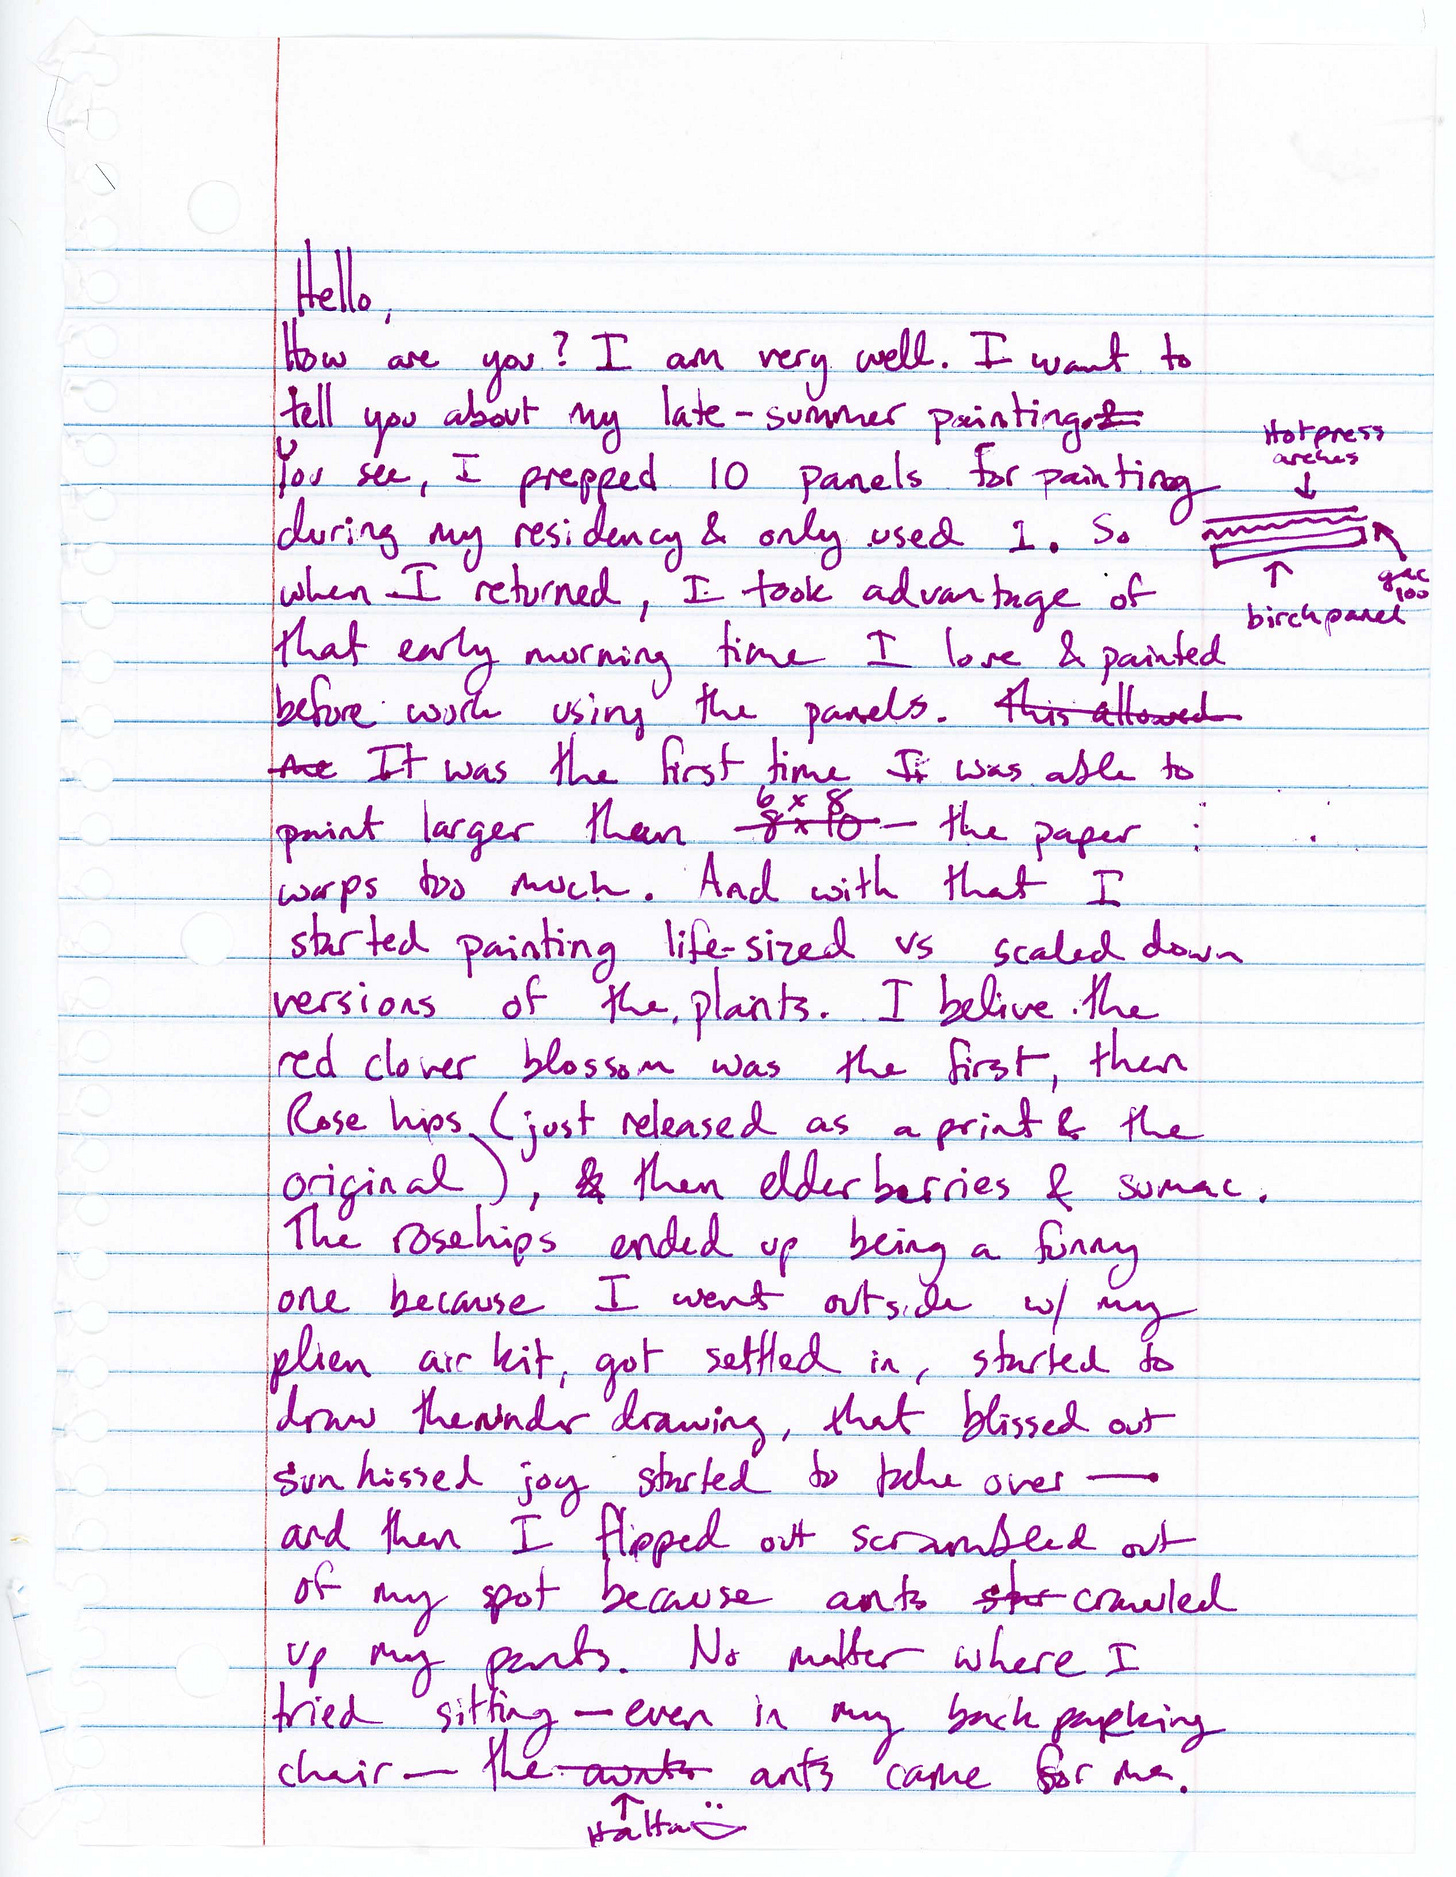 Hello,
How are you? I am very well. I want to
tell you about my late-summer painting. &
You see, I prepped 10 panels for painting
during my residency & only used 1. So
when I returned, I took advantage of
that early morning time I love & painted
before work using the panels. this allowed
me It was the first time I was able to
6 x 8
paint larger than 8 x 10 — the paper
warps too much. And with that I
started painting life-sized vs scaled down
versions of the plants. I belive the
red clover blossom was the first, then
Rose hips (just released as a print & the
original), & then elderberries & sumac.
The rosehips ended up being a funny
one because I went outside w/ my
plien air kit, got settled in, started to
draw the under drawing, that blissed out
sun kissed joy started to take over —
and then I flipped out scrambled out
of my spot because ants star crawled
up my pants. No matter where I
tried sitting — even in my back packing
chair — the aunts ants came for me.
↑
HaHa
Hot press
arches
↓
gac
100
↑
birch panel